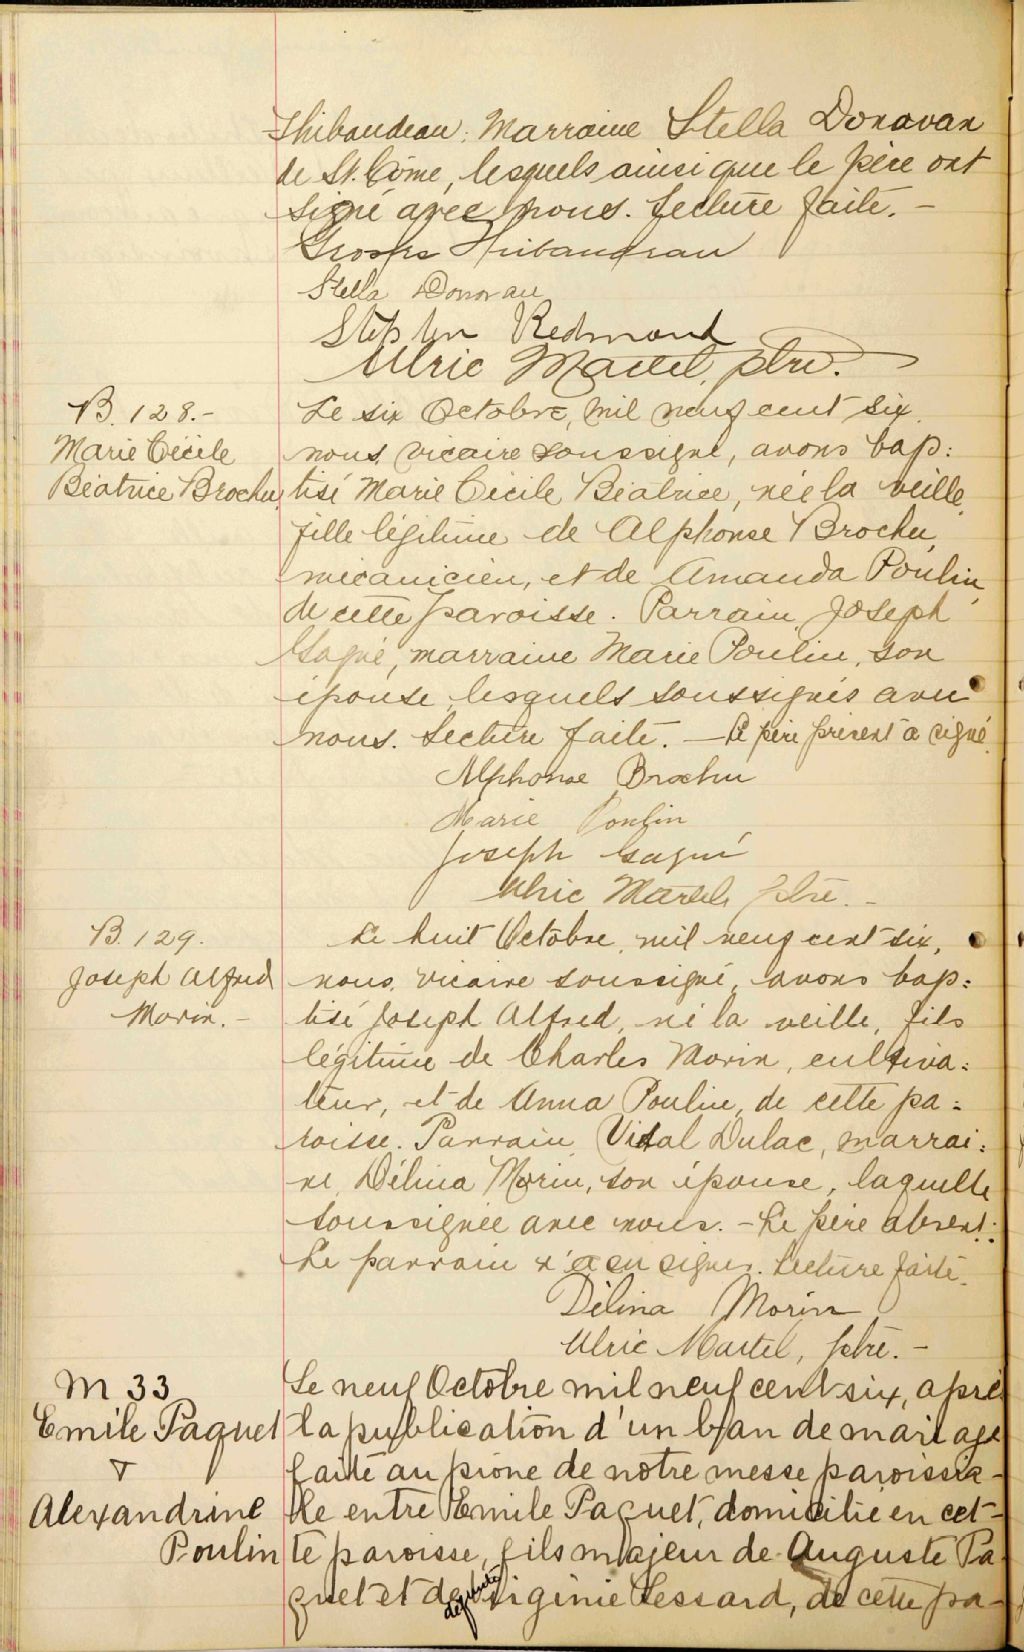 Thibaudeau. Marraine Stella Donavan
de St. Côme, lesquels ainsi que le père ont
signé avec nous. Lecture faite. –
Thibaudeau
Stella Donovan
Stephen Redmond
Ulric Martel, ptre.
B. 128. –
Marie Cécile
Béatrice Brochu,
Le six Octobre, mil neuf cent six,
nous, vicaire soussigné, avons bap:
tisé Marie Cécile Béatrice, née la veille,
fille légitime de Alphonse Brochu,
mécanicien, et de Amanda Poulin,
de cette paroisse. Parrain, Joseph
Gagné, marraine Marie Poulin, son
épouse, lesquels soussignés avec
nous. Lecture faite. – Le père présent a signé.
Alphonse Brochu
Marie Poulin
Joseph Gagné
Ulric Martel, ptre. –
B. 129.
Joseph Alfred
Morin. –
Le huit Octobre, mil neuf cent six,
nous, vicaire soussigné, avons bap:
tisé Joseph Alfred, né la veille, fils
légitime de Charles Morin, cultiva:
teur, et de Anna Poulin, de cette pa:
roisse. Parrain, Vital Dulac, marrai:
ne, Délina Morin, son épouse, laquelle
soussignée avec nous. – Le père absent.
Le parrain n'a su signer. Lecture faite.
Délina Morin
Ulric Martel, ptre. –
M 33
Emile Paquet
&
Alexandrine
Poulin
Le neuf Octobre mil neuf cent six, après
la publication d'un ban de mariage
faite au prône de notre messe paroissia-
le entre Emile Paquet, domicilié en cet-
te paroisse, fils majeur de Auguste Pa
quet et de défunte Virginie Lessard, de cette pa-